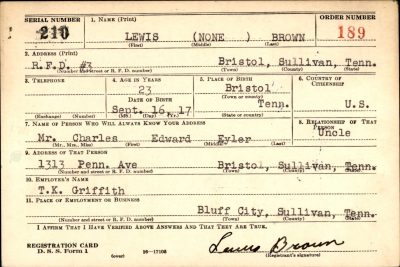 SERIAL NUMBER 1. NAME (Print) ORDER NUMBER
210 LEWIS (NONE) BROWN 189
(First) (Middle) (Last)
2. ADDRESS (Print)
R.F.D. #3 Bristol, Sullivan, Tenn.
(Number and street or R. F. D. number) (Town) (County) (State)
3. TELEPHONE 4. AGE IN YEARS 5. PLACE OF BIRTH 6. COUNTRY OF CITIZENSHIP
23 Bristol
DATE OF BIRTH (Town or county)
Sept. 16, 17 Tenn. U.S.
(Exchange) (Number) (Mo.) (Day) (Yr.) (State or country)
7. NAME OF PERSON WHO WILL ALWAYS KNOW YOUR ADDRESS 8. RELATIONSHIP OF THAT PERSON
Mr. Charles Edward Eyler Uncle
(Mr., Mrs., Miss) (First) (Middle) (Last)
9. ADDRESS OF THAT PERSON
1313 Penn. Ave Bristol, Sullivan, Tenn.
(Number and street or R. F. D. number) (Town) (County) (State)
10. EMPLOYER'S NAME
T.K. Griffith
11. PLACE OF EMPLOYMENT OR BUSINESS
Bluff City, Sullivan, Tenn.
(Number and street or R. F. D. number) (Town) (County) (State)
I AFFIRM THAT I HAVE VERIFIED ABOVE ANSWERS AND THAT THEY ARE TRUE.
REGISTRATION CARD
D. S. S. Form 1 (over) 16—17105 Lewis Brown
(Registrant's signature)